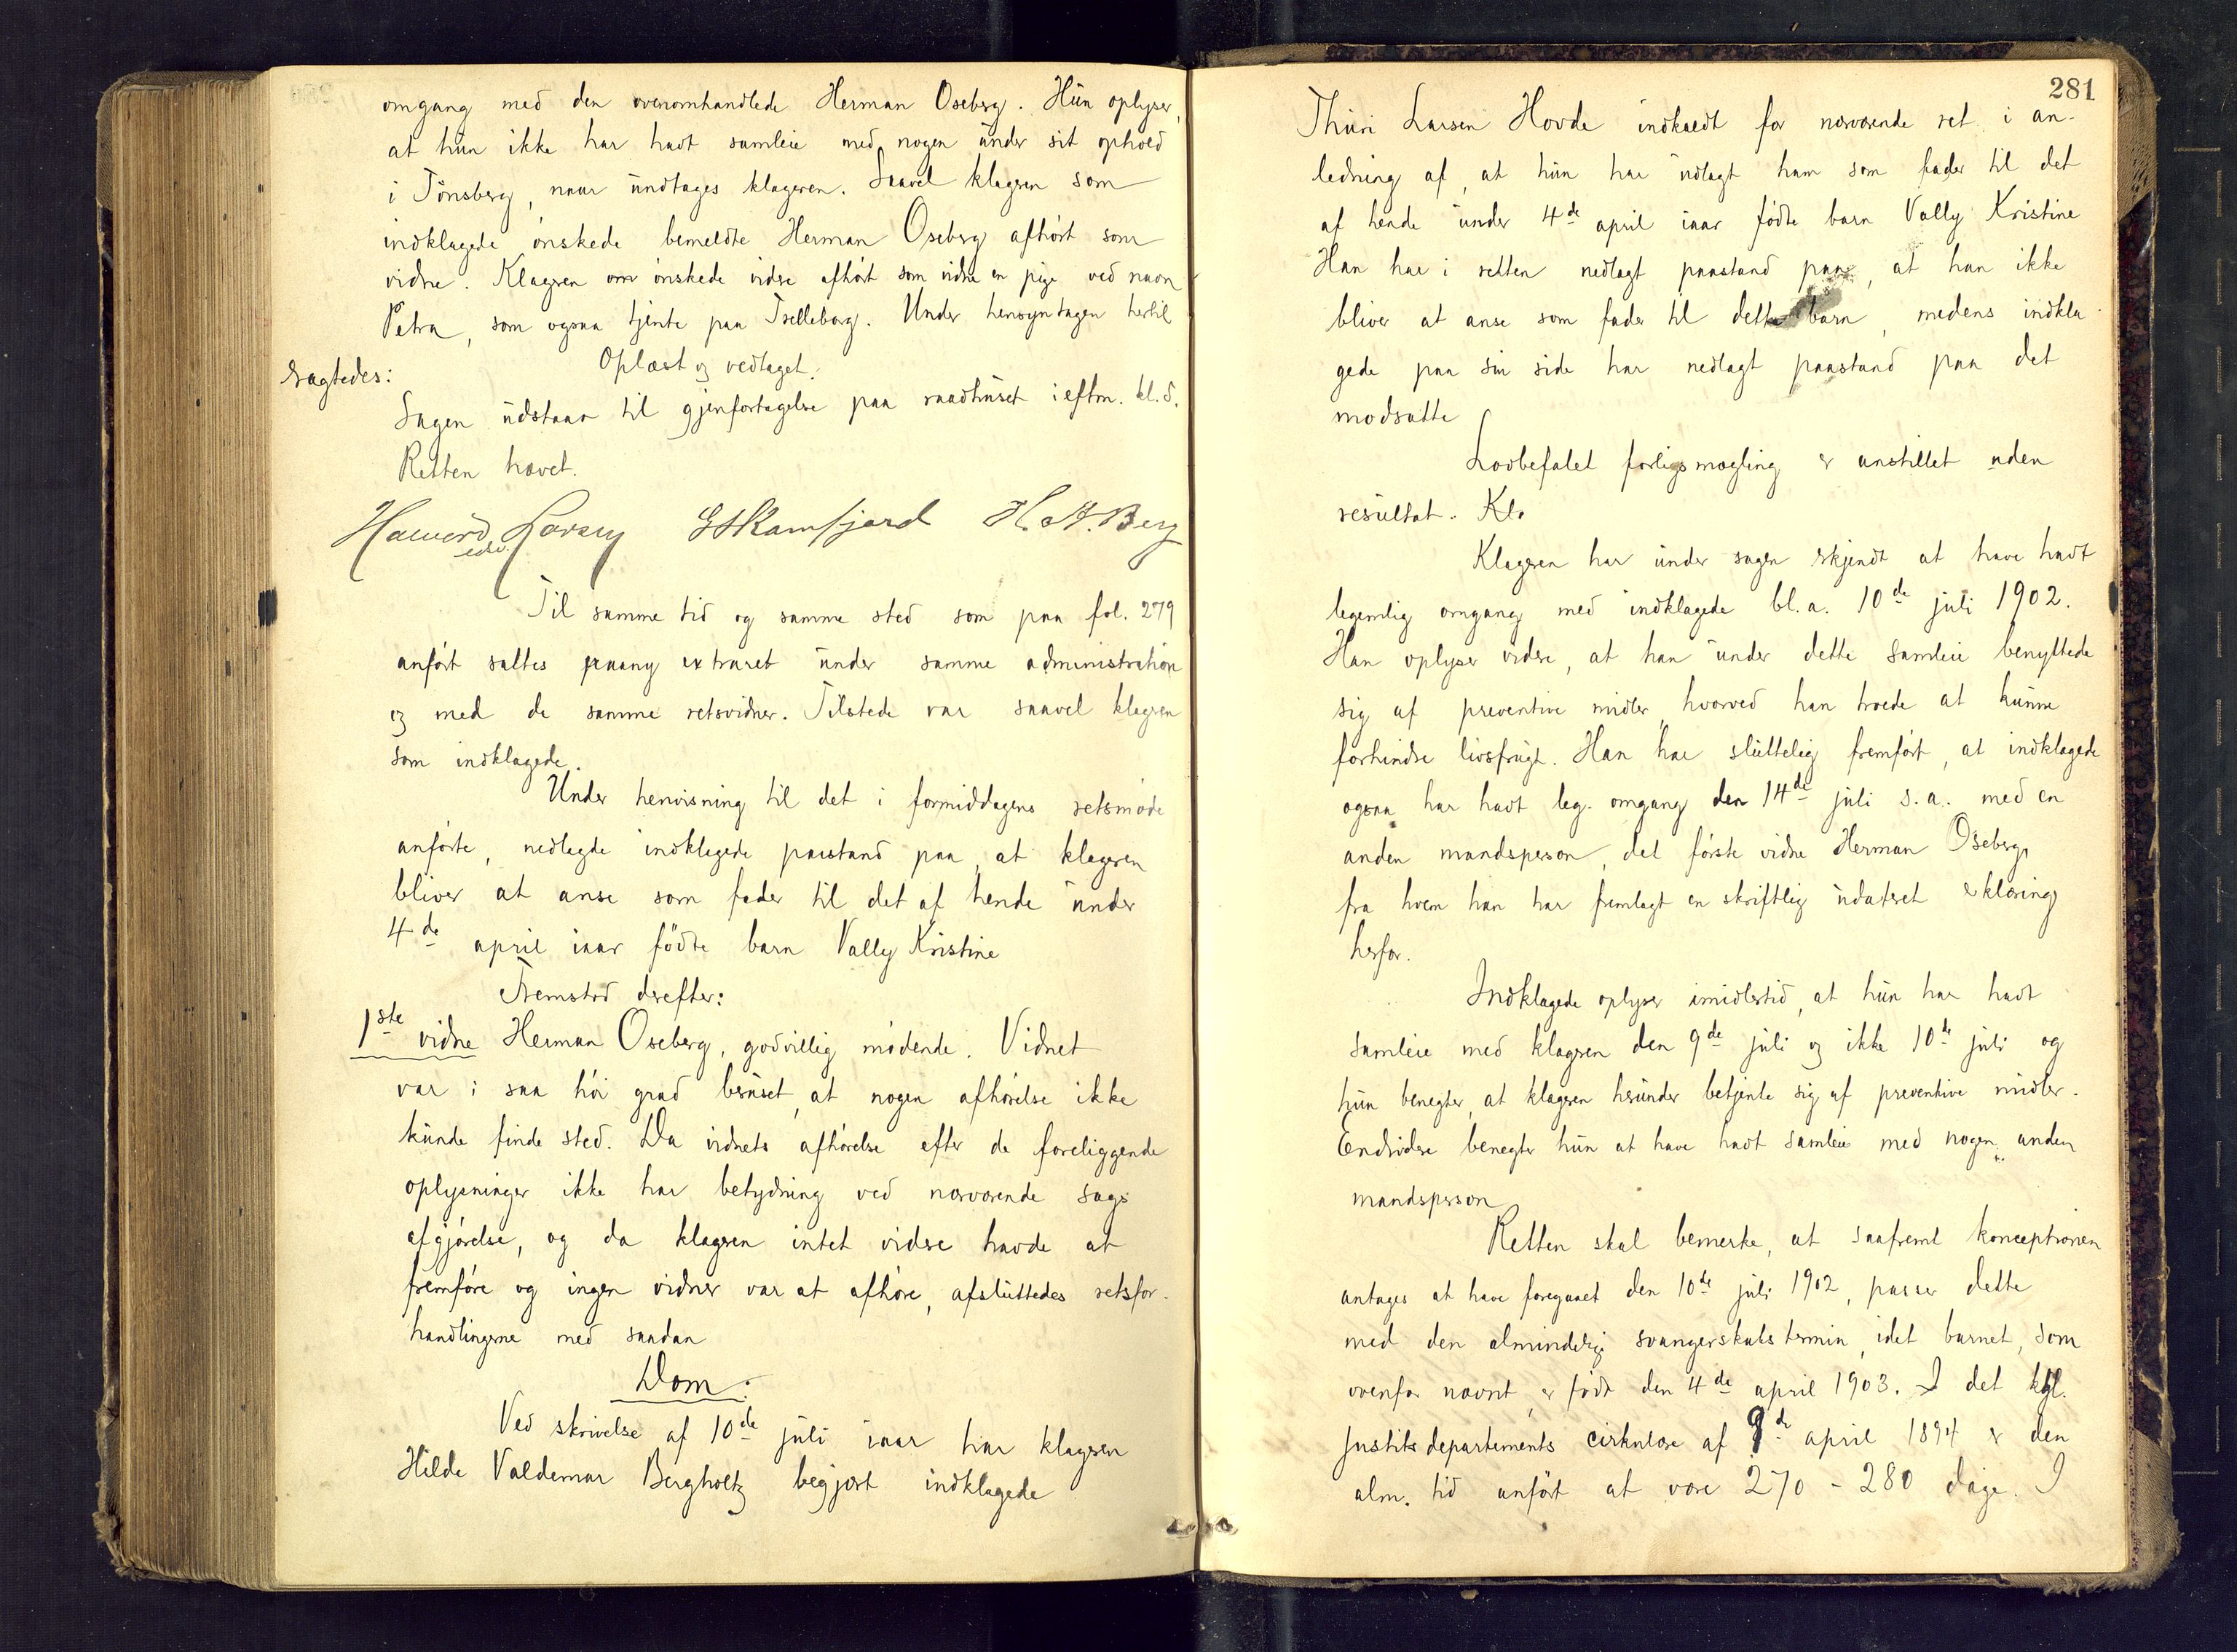 omgang med den ovenomhandlede Herman Oseberg. Hun oplyser,
at hun ikke har havt samleie med nogen under sit ophold
i Tönsberg, naar undtages klageren. Saavel klageren som
indklagede ønskede bemeldte Herman Oseberg afhört som
vidne. Klageren ønskede vidre afhört som vidne en pige ved navn
Petra, som ogsaa tjente paa Trelleborg. Under hensyntagen hertil
ragtedes:
Oplæst og vedtaget.
Sagen udstaar til gjenfortagelse paa raadhuset i eftm. kl. 5.
Retten hævet.
Larsen G Skamfjord H. A. Berg
Til samme tid og samme sted som paa fol. 279
anfört sattes paany extraret under samme administration
og med de samme retsvidner. Tilstede var saavel klageren
som indklagede.
Under henvisning til det i formiddagens retsmöde
anförte, nedlagde indklagede paastand paa, at klageren
bliver at anse som fader til det af hende under
4de april iaar födte barn Vally Kristine
Fremstod derefter:
1ste vidne Herman Oseberg, godvillig mödende. Vidnet
var i saa höi grad beruset, at nogen afhörelse ikke
kunde finde sted. Da vidnets afhörelse efter de foreliggende
oplysninger ikke har betydning ved nærværende sags
afgjörelse, og da klageren intet vidre havde at
fremföre og ingen vidner var at afhöre, afsluttedes retsfor-
handlingerne med saadan
Dom:
Ved skrivelse af 10de juli iaar har klageren
Hilde Valdemar Bergholtz begjært indklagede
281
Thuri Larsen Hovde indkaldt for nærværende ret i an-
ledning af, at hun har udlagt ham som fader til det
af hende under 4de april iaar födte barn Vally Kristine
Han har i retten nedlagt paastand paa, at han ikke
bliver at anse som fader til dette barn, medens indkla-
gede paa sin side har nedlagt paastand paa det
modsatte
Lovbefalet forligsmægling er anstillet uden
resultat. Kla
Klageren har under sagen erkjendt at have havt
legemlig omgang med indklagede bl. a. 10de juli 1902.
Han oplyser vidre, at han under dette samleie benyttede
sig af preventive midler, hvorved han troede at kunne
forhindre livsfrugt. Han har sluttelig fremfört, at indklagede
ogsaa har havt leg. omgang den 14de juli s. a. med en
anden mandsperson, det förste vidne Herman Oseberg,
fra hvem han har fremlagt en skriftlig udateret erklæring
herfor.
Indklagede oplyser imidlertid, at hun har havt
samleie med klageren den 9de juli og ikke 10de juli og
hun benegter, at klageren herunder betjente sig af preventive midler.
Endvidere benegter hun at have havt samleie med nogen anden
mandsperson
Retten skal bemerke, at saafremt konceptionen
antages at have foregaaet den 10de juli 1902, passer dette
med den almindelige svangerskabstermin, idet barnet, som
ovenfor nævnt, er födt den 4de april 1903. I det kgl.
Justitsdepartements cirkulære af 9de april 1894 er den
alm. tid anfört at være 270 - 280 dage. I